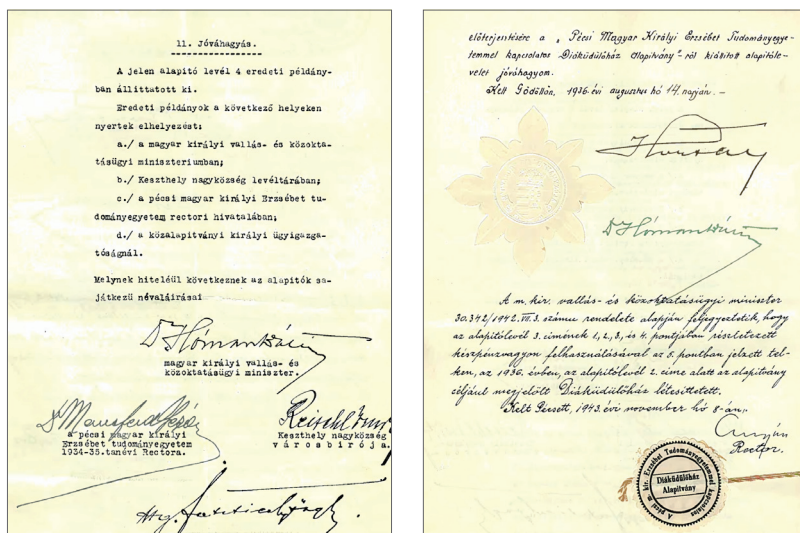 11. Jóváhagyás.
A jelen alapitó levél 4 eredeti példány-
ban állittatott ki.
Eredeti példányok a következő helyeken
nyertek elhelyezést:
a./ a magyar királyi vallás- és közokta-
tásügyi miniszteriumban;
b./ Keszthely nagyközség levéltárában;
c./ a pécsi magyar királyi Erzsébet tu-
dományegyetem rectori hivatalában;
d./ a közalapitványi királyi ügyigazga-
tóságnál.
Melynek hiteléül következnek az alapitók sa-
játkezü névaláirásai
Dr Hóman Bálint
magyar királyi vallás- és
közoktatásügyi miniszter.
Dr
a pécsi magyar királyi
Erzsébet tudományegyetem
1934-35.tanévi Rectora.
Reischl
Keszthely nagyközség
városbirója.
előterjesztésére a „Pécsi Magyar Királyi Erzsébet Tudományegye-
temmel kapcsolatos Diáküdülőház Alapítvány"-ról kiállított alapítóle-
velet jóváhagyom.
Kelt Gödöllőn, 1936. évi augusztus hó 14. napján. -
Horthy
Dr Hóman Bálint
A m. kir. vallás- és közoktatásügyi miniszter
30.342/1942.VII.3. számu rendelete alapján feljegyeztetik, hogy
az alapítólevél 3. címének 1, 2, 3, és 4. pontjában részletezett
készpénzvagyon felhasználásával az 5. pontban jelzett tel-
ken, az 1936. évben, az alapítólevél 2. címe alatt az alapítvány
céljául megjelölt Diáküdülőház létesíttetett.
Kelt Pécsett, 1943. évi november hó 8-án.
Rector.
A pécsi m. kir. Erzsébet Tudományegyetemmel kapcsolatos
Diáküdülőház
Alapítvány